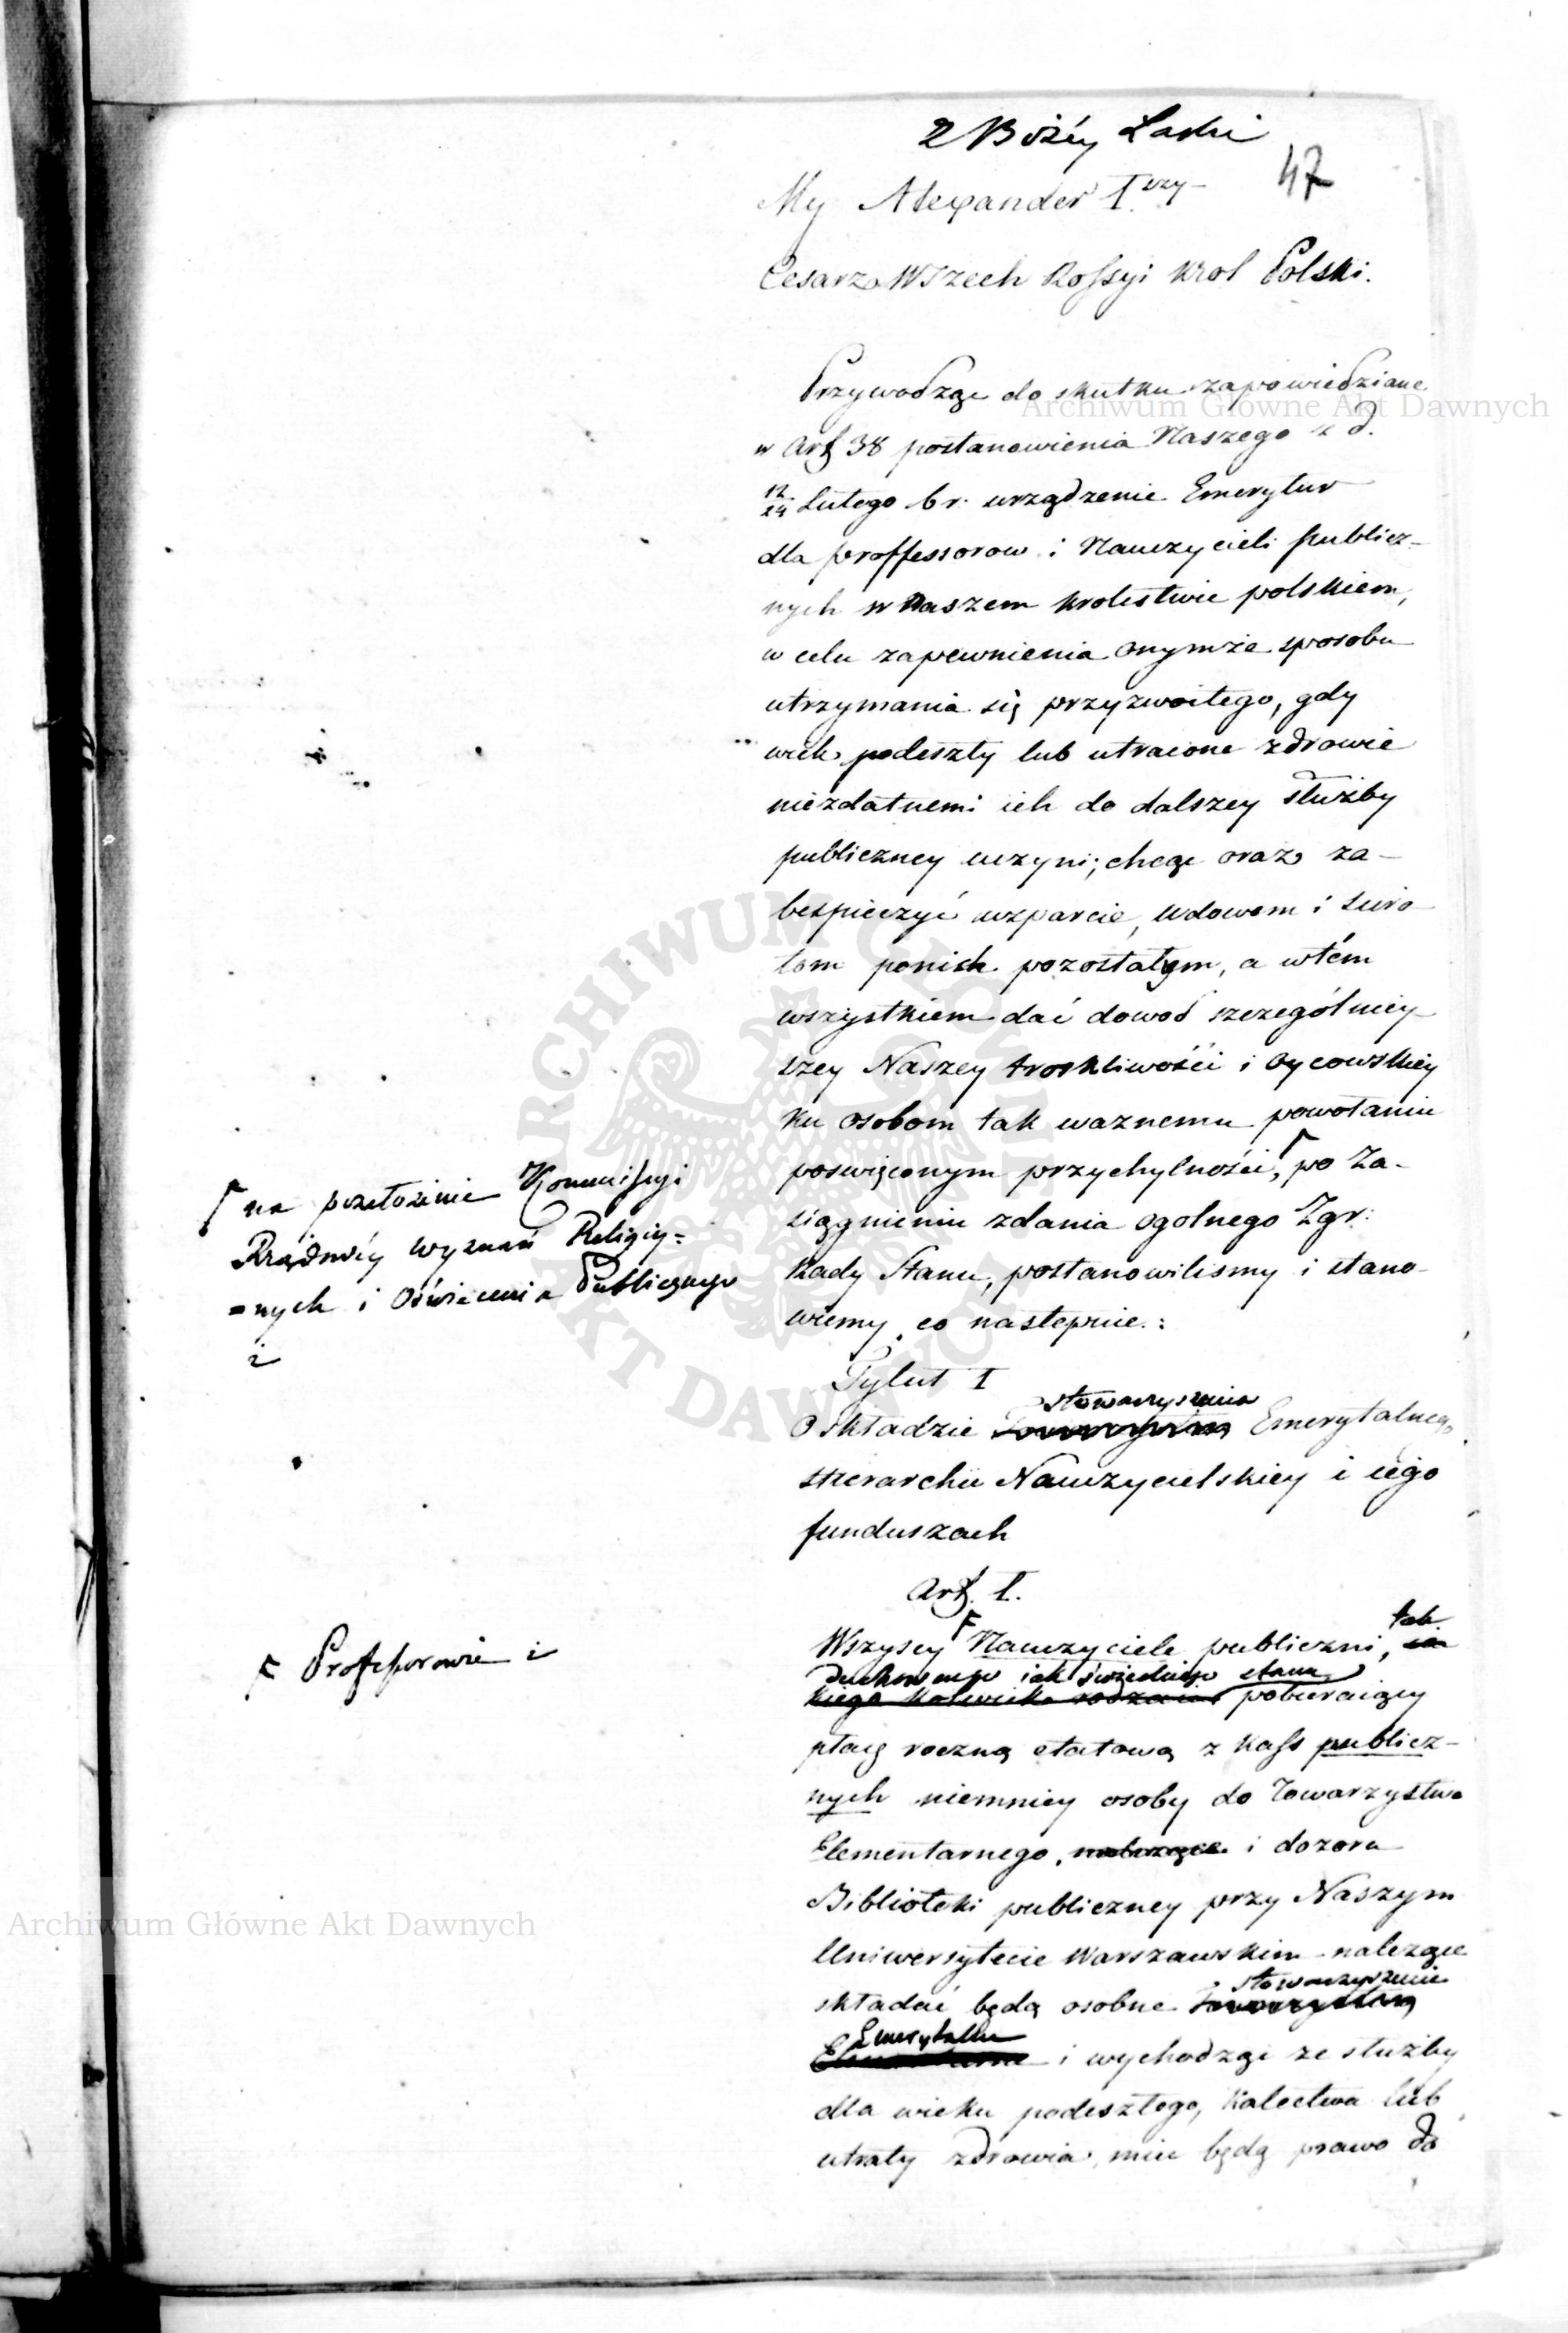 Z Bożéy Łaski
47
My Alexander I.szy
Cesarz Wszech Rossyi Krol Polski.
Przywodząc do skutku zapowiedziane
Archiwum Główne Akt Dawnych
w Art 38 postanowienia Naszego z d.
12/24 Lutego b r. urządzenie Emerytur
dla proffessorow i Nauczycieli publicz-
nych w Naszem Krolestwie polskiem,
w celu zapewnienia onymże sposobu
utrzymania się przyzwoitego, gdy
wiek podeszły lub utracone zdrowie
niezdatnemi ich do dalszey służby
publiczney uczyni; chcąc oraz za-
bespieczyć wsparcie, wdowom i siero
tom ponich pozostałym, a wtém
wszystkiem dać dowod szczególniey-
szey Naszey troskliwości i oycowskiey
ku osobom tak waznemu powołaniu
poswięconym przychylności, Γ po Za-
siągnieniu zdania ogolnego Zgr:
Rady Stanu, postanowilismy i stano-
wiemy co nastepuie:
Γ na przełożenie Kommissyi
Rządowéy Wyznań Religiy=
=nych i Oświecenia Publicznego
i
Tytuł I
stowarzyszenia
O składzie Emerytalnego
Hierarchii Nauczycielskiey i iego
funduszach
Art. I.
F tak
Wszyscy Nauczyciele publiczni,
F Professorowie i
Duchownego iak świeckiego stanu
kiego kolwiek rodzaiu pobieraiący
płacę roczną etatową z Kass publicz-
nych niemniey osoby do Towarzystwa
Elementarnego, należące i dozoru
Biblioteki publiczney przy Naszym
Archiwum Główne Akt Dawnych
Uniwersytecie Warszawskim należące
stowarzyszenie
składać będą osobne
Emerytalne
i wychodząc ze służby
dla wieku podeszłego, Kalectwa lub
utraty zdrowia, mieć będą prawo do
ARCHIWUM GŁÓWNE AKT DAWNYCH